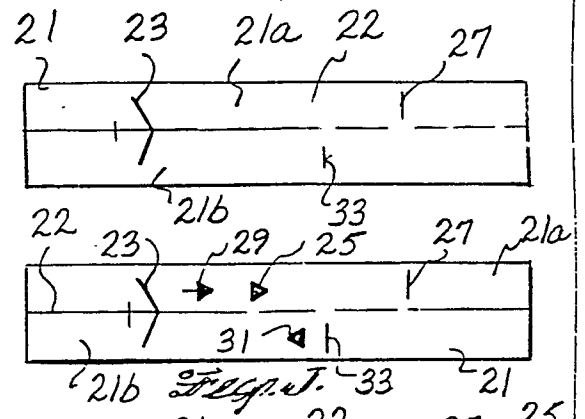 21 23 21a 22 27
21b 33
22 23 29 25 27 21a
31
21b 33 21
22 25